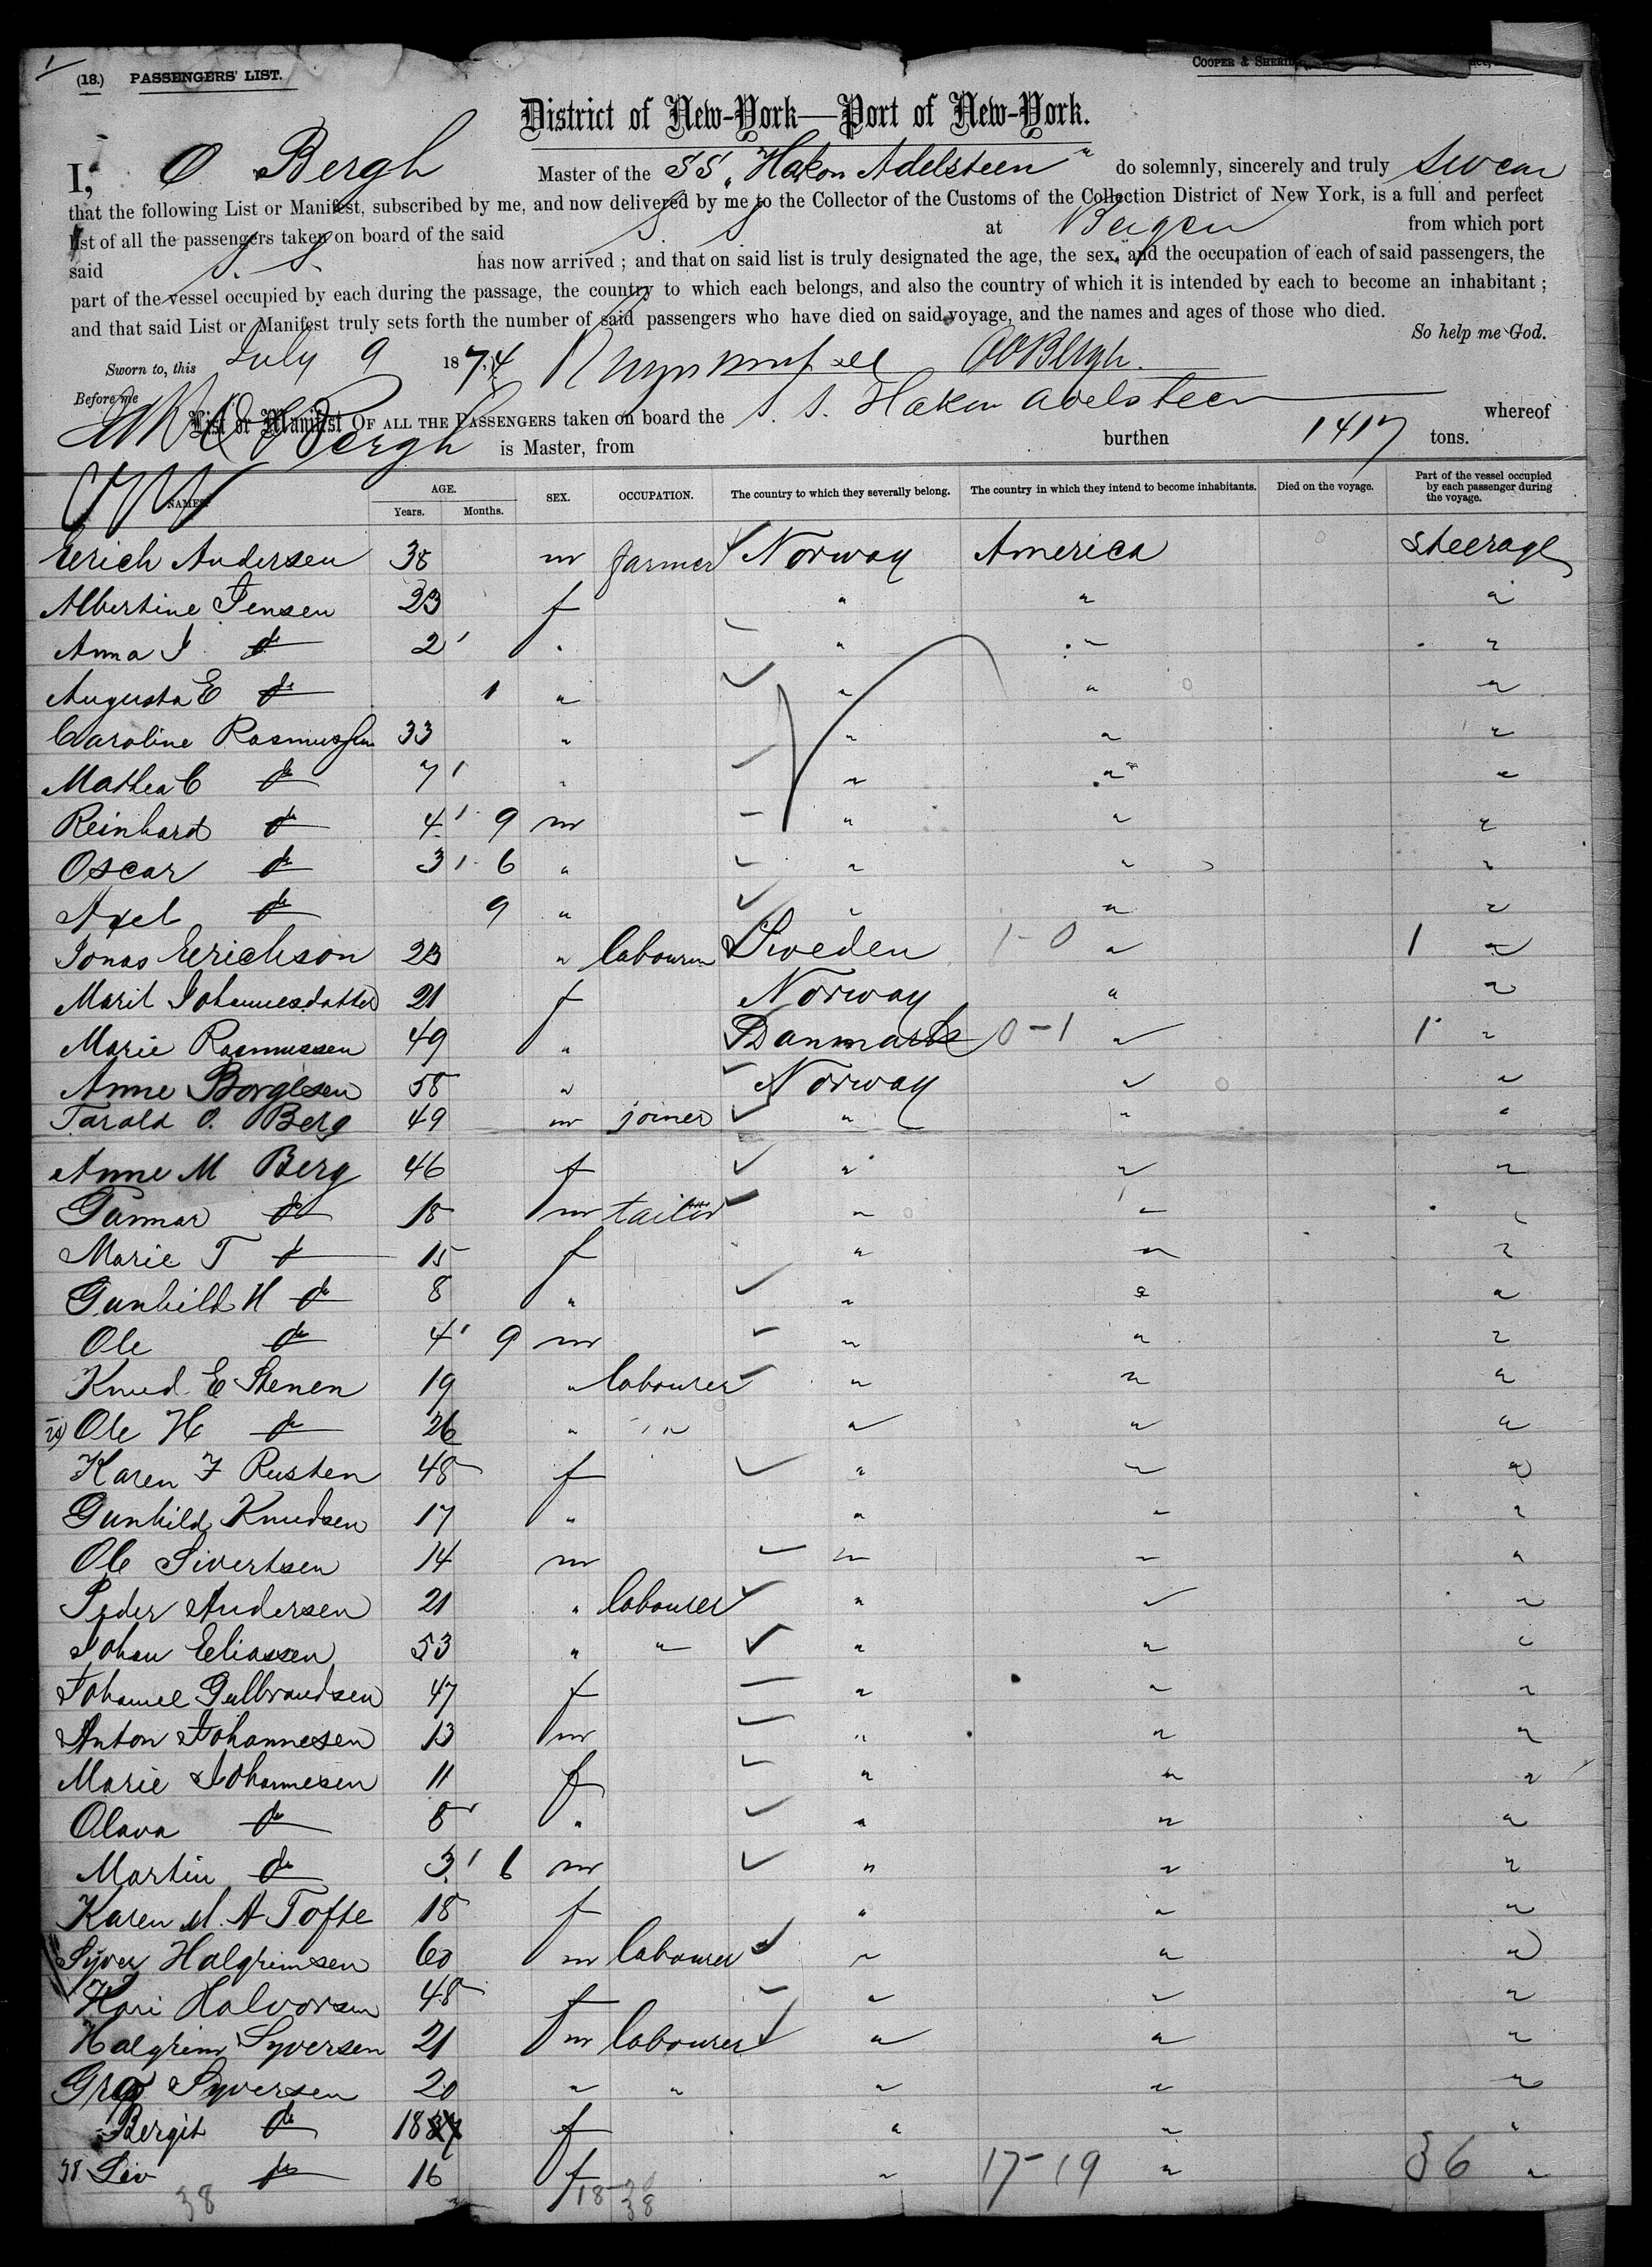 1
(18.) PASSENGERS' LIST.
COOPER & SHERID
District of New-York—Port of New-York.
I, O Bergh Master of the SS. "Hakon Adelsteen" do solemnly, sincerely and truly swear
that the following List or Manifest, subscribed by me, and now delivered by me to the Collector of the Customs of the Collection District of New York, is a full and perfect
list of all the passengers taken on board of the said S. S. at Bergen from which port
said S. S. has now arrived ; and that on said list is truly designated the age, the sex, and the occupation of each of said passengers, the
part of the vessel occupied by each during the passage, the country to which each belongs, and also the country of which it is intended by each to become an inhabitant ;
and that said List or Manifest truly sets forth the number of said passengers who have died on said voyage, and the names and ages of those who died.
So help me God.
Sworn to, this July 9 1874 OBergh.
Before me
List or Manifest OF ALL THE PASSENGERS taken on board the S. S. Hakon Adelsteen whereof
O Bergh is Master, from burthen 1417 tons.
NAMES. AGE. Years. Months. SEX. OCCUPATION. The country to which they severally belong. The country in which they intend to become inhabitants. Died on the voyage. Part of the vessel occupied by each passenger during the voyage.
Erich Andersen 38 m farmer Norway America steerage
Albertine Jensen 23 f " " "
Anna J do 2 " " " "
Augusta E do 1 " " " "
Caroline Rasmussen 33 " " " "
Mathea C do 7 " " " "
Reinhard do 4 9 m " " "
Oscar do 3 6 " " " "
Axel do 9 " " " "
Jonas Erichson 23 " labourer Sweden 1-0 " 1 "
Marit Johannesdatter 21 f Norway " "
Marie Rasmussen 49 " Danmark 0-1 " 1 "
Anne Borgesen 58 " Norway " "
Tarald O. Berg 49 m joiner " " "
Anne M Berg 46 f " " "
Gunnar do 18 m tailor " " "
Marie T do 15 f " " "
Gunhild H do 8 " " " "
Ole do 4 9 m " " "
Knud E Stenen 19 " labourer " " "
Ole H do 26 " " " " "
Karen F Rusten 48 f " " "
Gunhild Knudsen 17 " " " "
Ole Sivertsen 14 m " " "
Peder Andersen 21 " labourer " " "
Johan Eliassen 53 " " " " "
Johanne Gulbrandsen 47 f " " "
Anton Johannesen 13 m " " "
Marie Johannesen 11 f " " "
Olava do 8 " " " "
Martin do 3 6 m " " "
Karen M. A Tofte 18 f " " "
Syver Halgrimsen 60 m labourer " " "
Kari Halvorsen 48 f " " "
Halgrim Syversen 21 m labourer " " "
Gro Syversen 20 " " " " "
Bergit do 18 f " " "
38 Liv do 16 f " 17-19 " 36 "
38 18 38